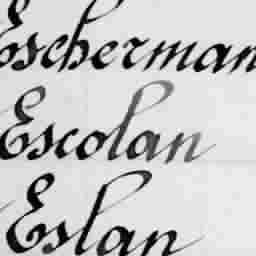 Escherman
Escolan
Eslan